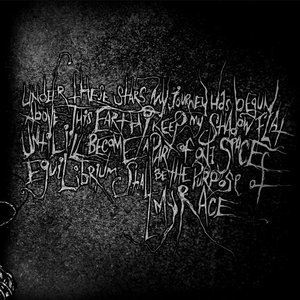 UNDER THESE STARS MY JOURNEY HAS BEGUN
ABOVE THIS EARTH I KEEP MY SHADOW
UNTIL I'LL BECOME A PART OF SPACE
EQUILIBRIUM SHALL BE THE PURPOSE OF
MY RACE